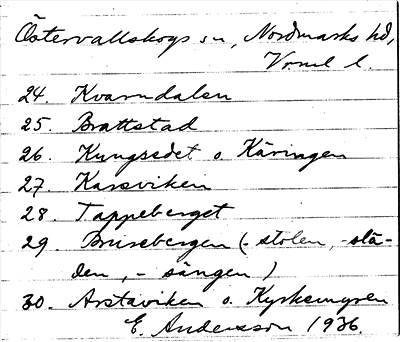 Östervallskogs sn, Nordmarks hd,
Vrml l.
24. Kvarndalen
25. Brattstad
26. Kungsedet o. Käringen
27. Kasviken
28. Tappeberget
29. Brisebergen (- stolen, - slä-
den, - sängen)
30. Årstaviken o. Kyrkemyren
E. Andersson 1936.